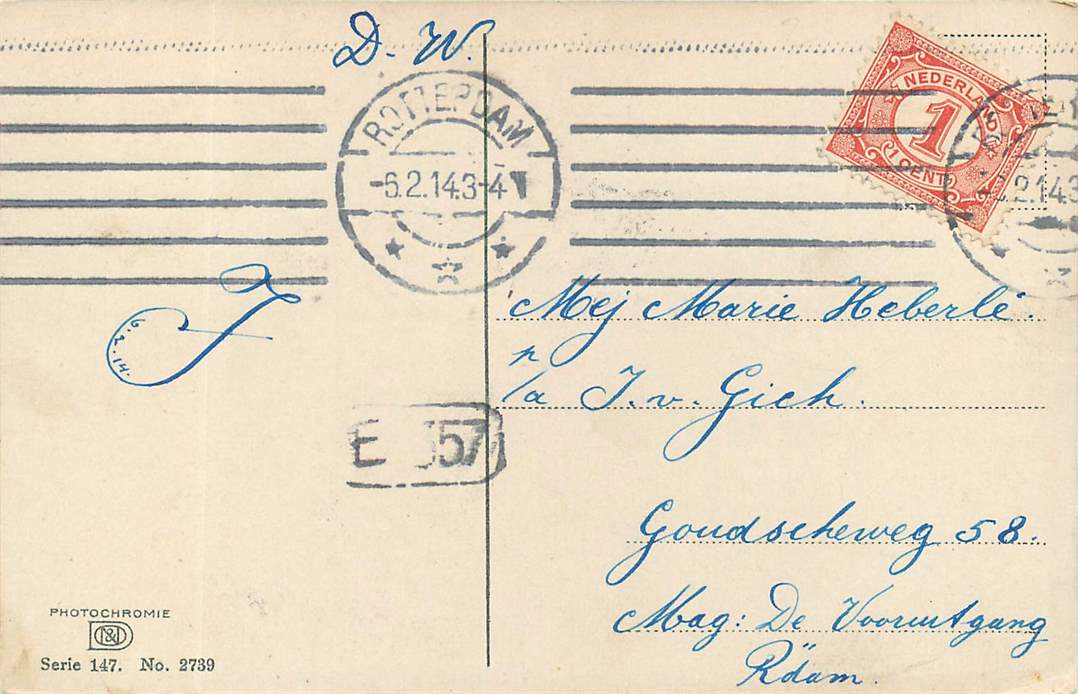 D. W.
ROTTERDAM
-6.2.14.3-4
NEDERLAND
1
1 CENT
2.14.3
6.2.14.
J
Mej Marie Heberlé.
p/a J. v. Gich.
E 357
Goudscheweg 58.
Mag: De Vooruitgang
R̈dam.
PHOTOCHROMIE
Serie 147. No. 2739